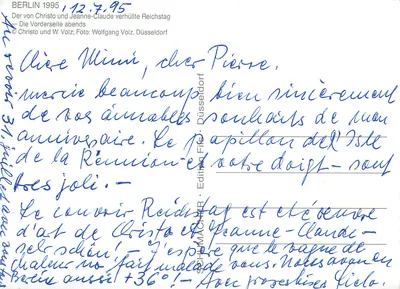 BERLIN 1995, 12.7.95
Der von Christo und Jeanne-Claude verhüllte Reichstag
— Die Vorderseite abends
© Christo und W. Volz; Foto: Wolfgang Volz, Düsseldorf
Chère Mimi, cher Pierre.
mercie beaucoup bien sincèrement
de vos aimables souhaits de mon
anniversaire. Le papillon de l'Isle
de la Réunion et votre doigt - sont
très joli. -
Le couvrir Reichstag est été
d'art de Christo et Jeanne-Claude -
sehr schön! - J'espère que le vague de
chaleur no fait malade vous. Nous avons
Berlin aussi +36°! - Avec
Au revoir 31 juillet avec
Edition Fils · Düsseldorf